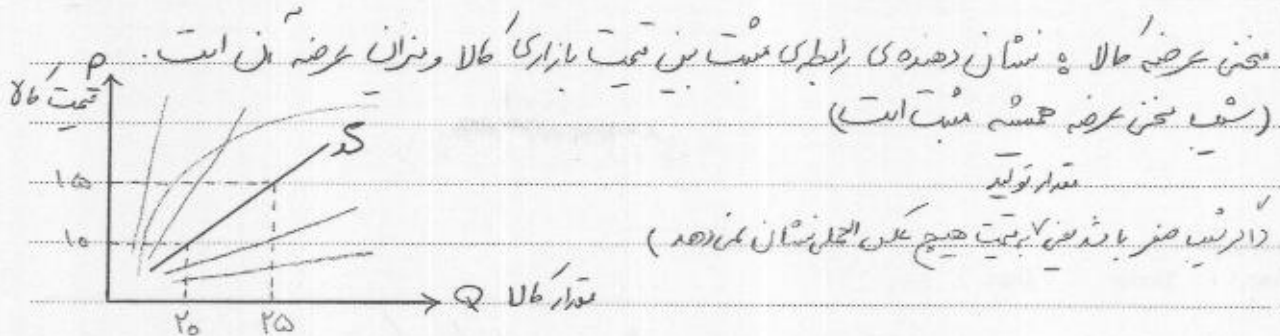 منحنی عرضه کالا : نشان دهنده ی رابطه ی مثبت بین قیمت بازاری کالا و میزان عرضه آن است.
(شیب منحنی عرضه همیشه مثبت است)
مقدار تولید
(اگر شیب صفر باشد یعنی به قیمت هیچ عکس العملی نشان نمی دهد)
P
قیمت کالا
S
۱۵
۱۰
۲۰ ۲۵
Q مقدار کالا